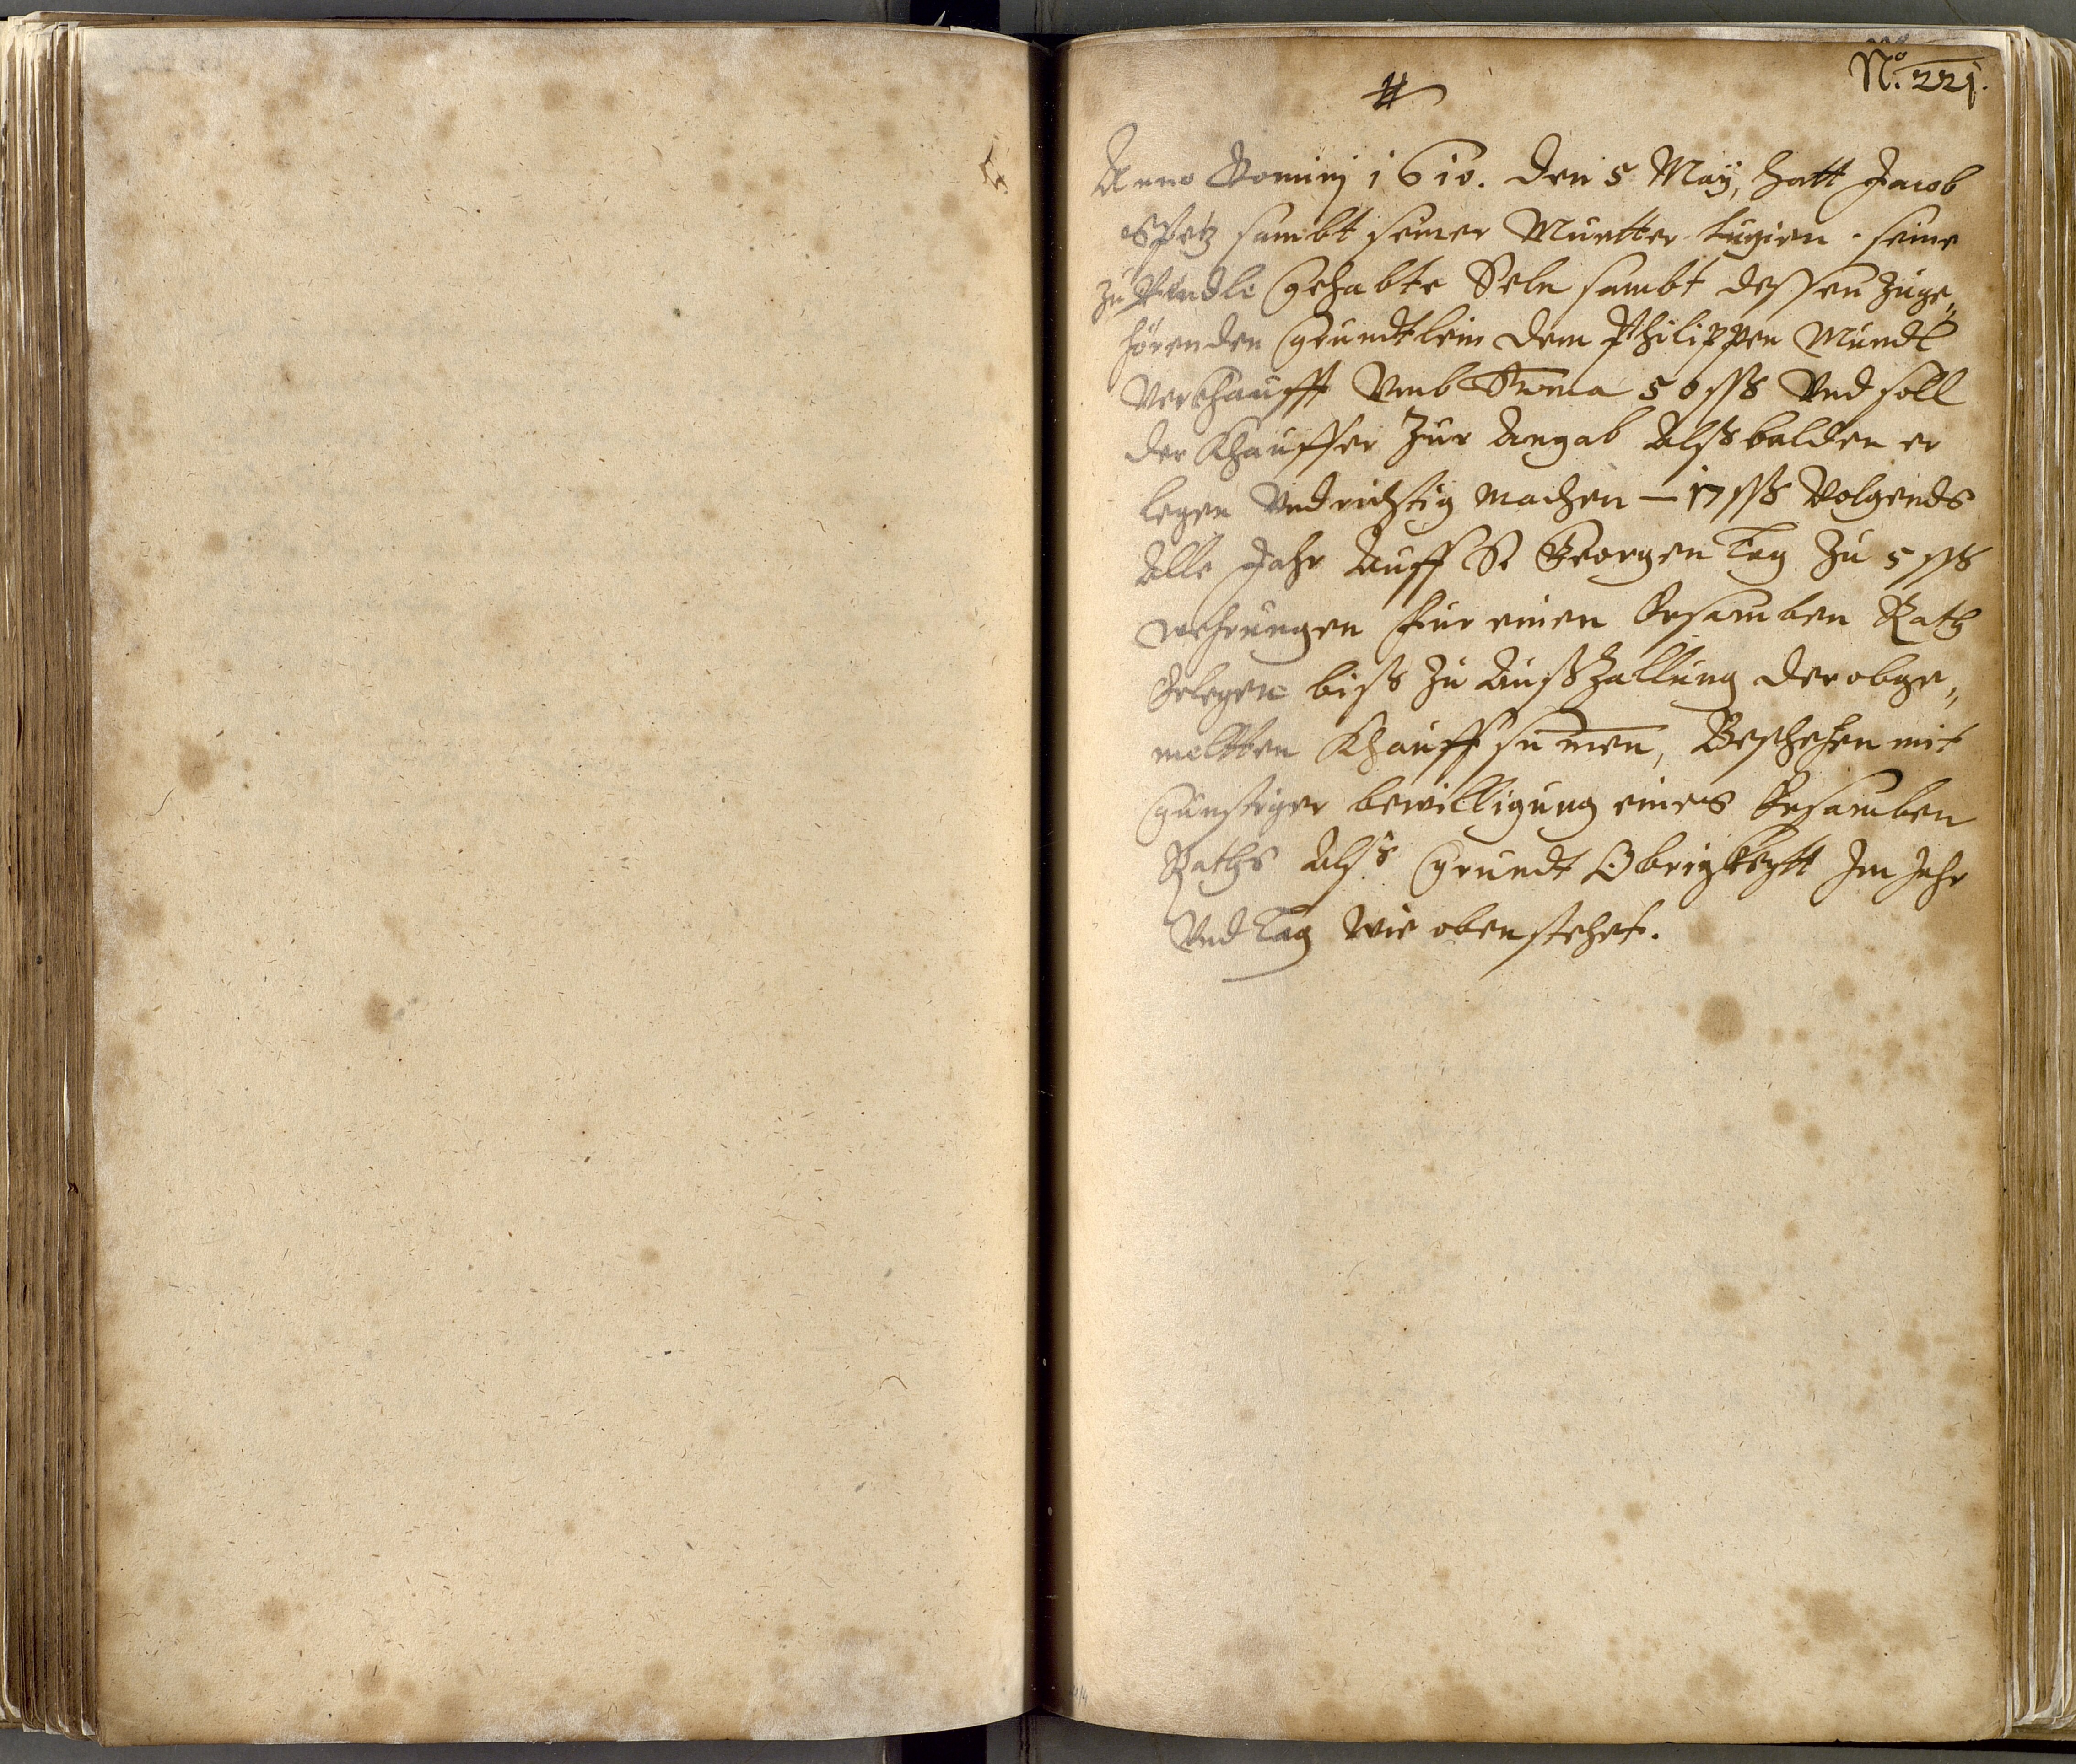 No. 221.
Anno Dominj 1610. den 5 Maÿ, hatt Jacob
Spetz sambt seiner Muetter Luzien seine
zu gehabte Seln sambt dessen zuge„
hörenden Grundtlein dem Philippen Mundl
Verkhaufft Vmb Suma 50 ßß Vnd soll
der Khauffer zur Angab Alßbalden er
legen Vnd richtig machen — 17 ßß Volgends
Alle Jahr Auff St Georgen Tag zu 5 ßß
wehrungen für einen Ersamben Rath
Erlegen biß zu Außzallung der obge„
meltten Khauffsumen, Beschehen mit
günstiger bewilligung eines Ersamben
Raths Alß Grundt Obrigkheytt Im Jahr
Vnd Tag Wie oben stehet.